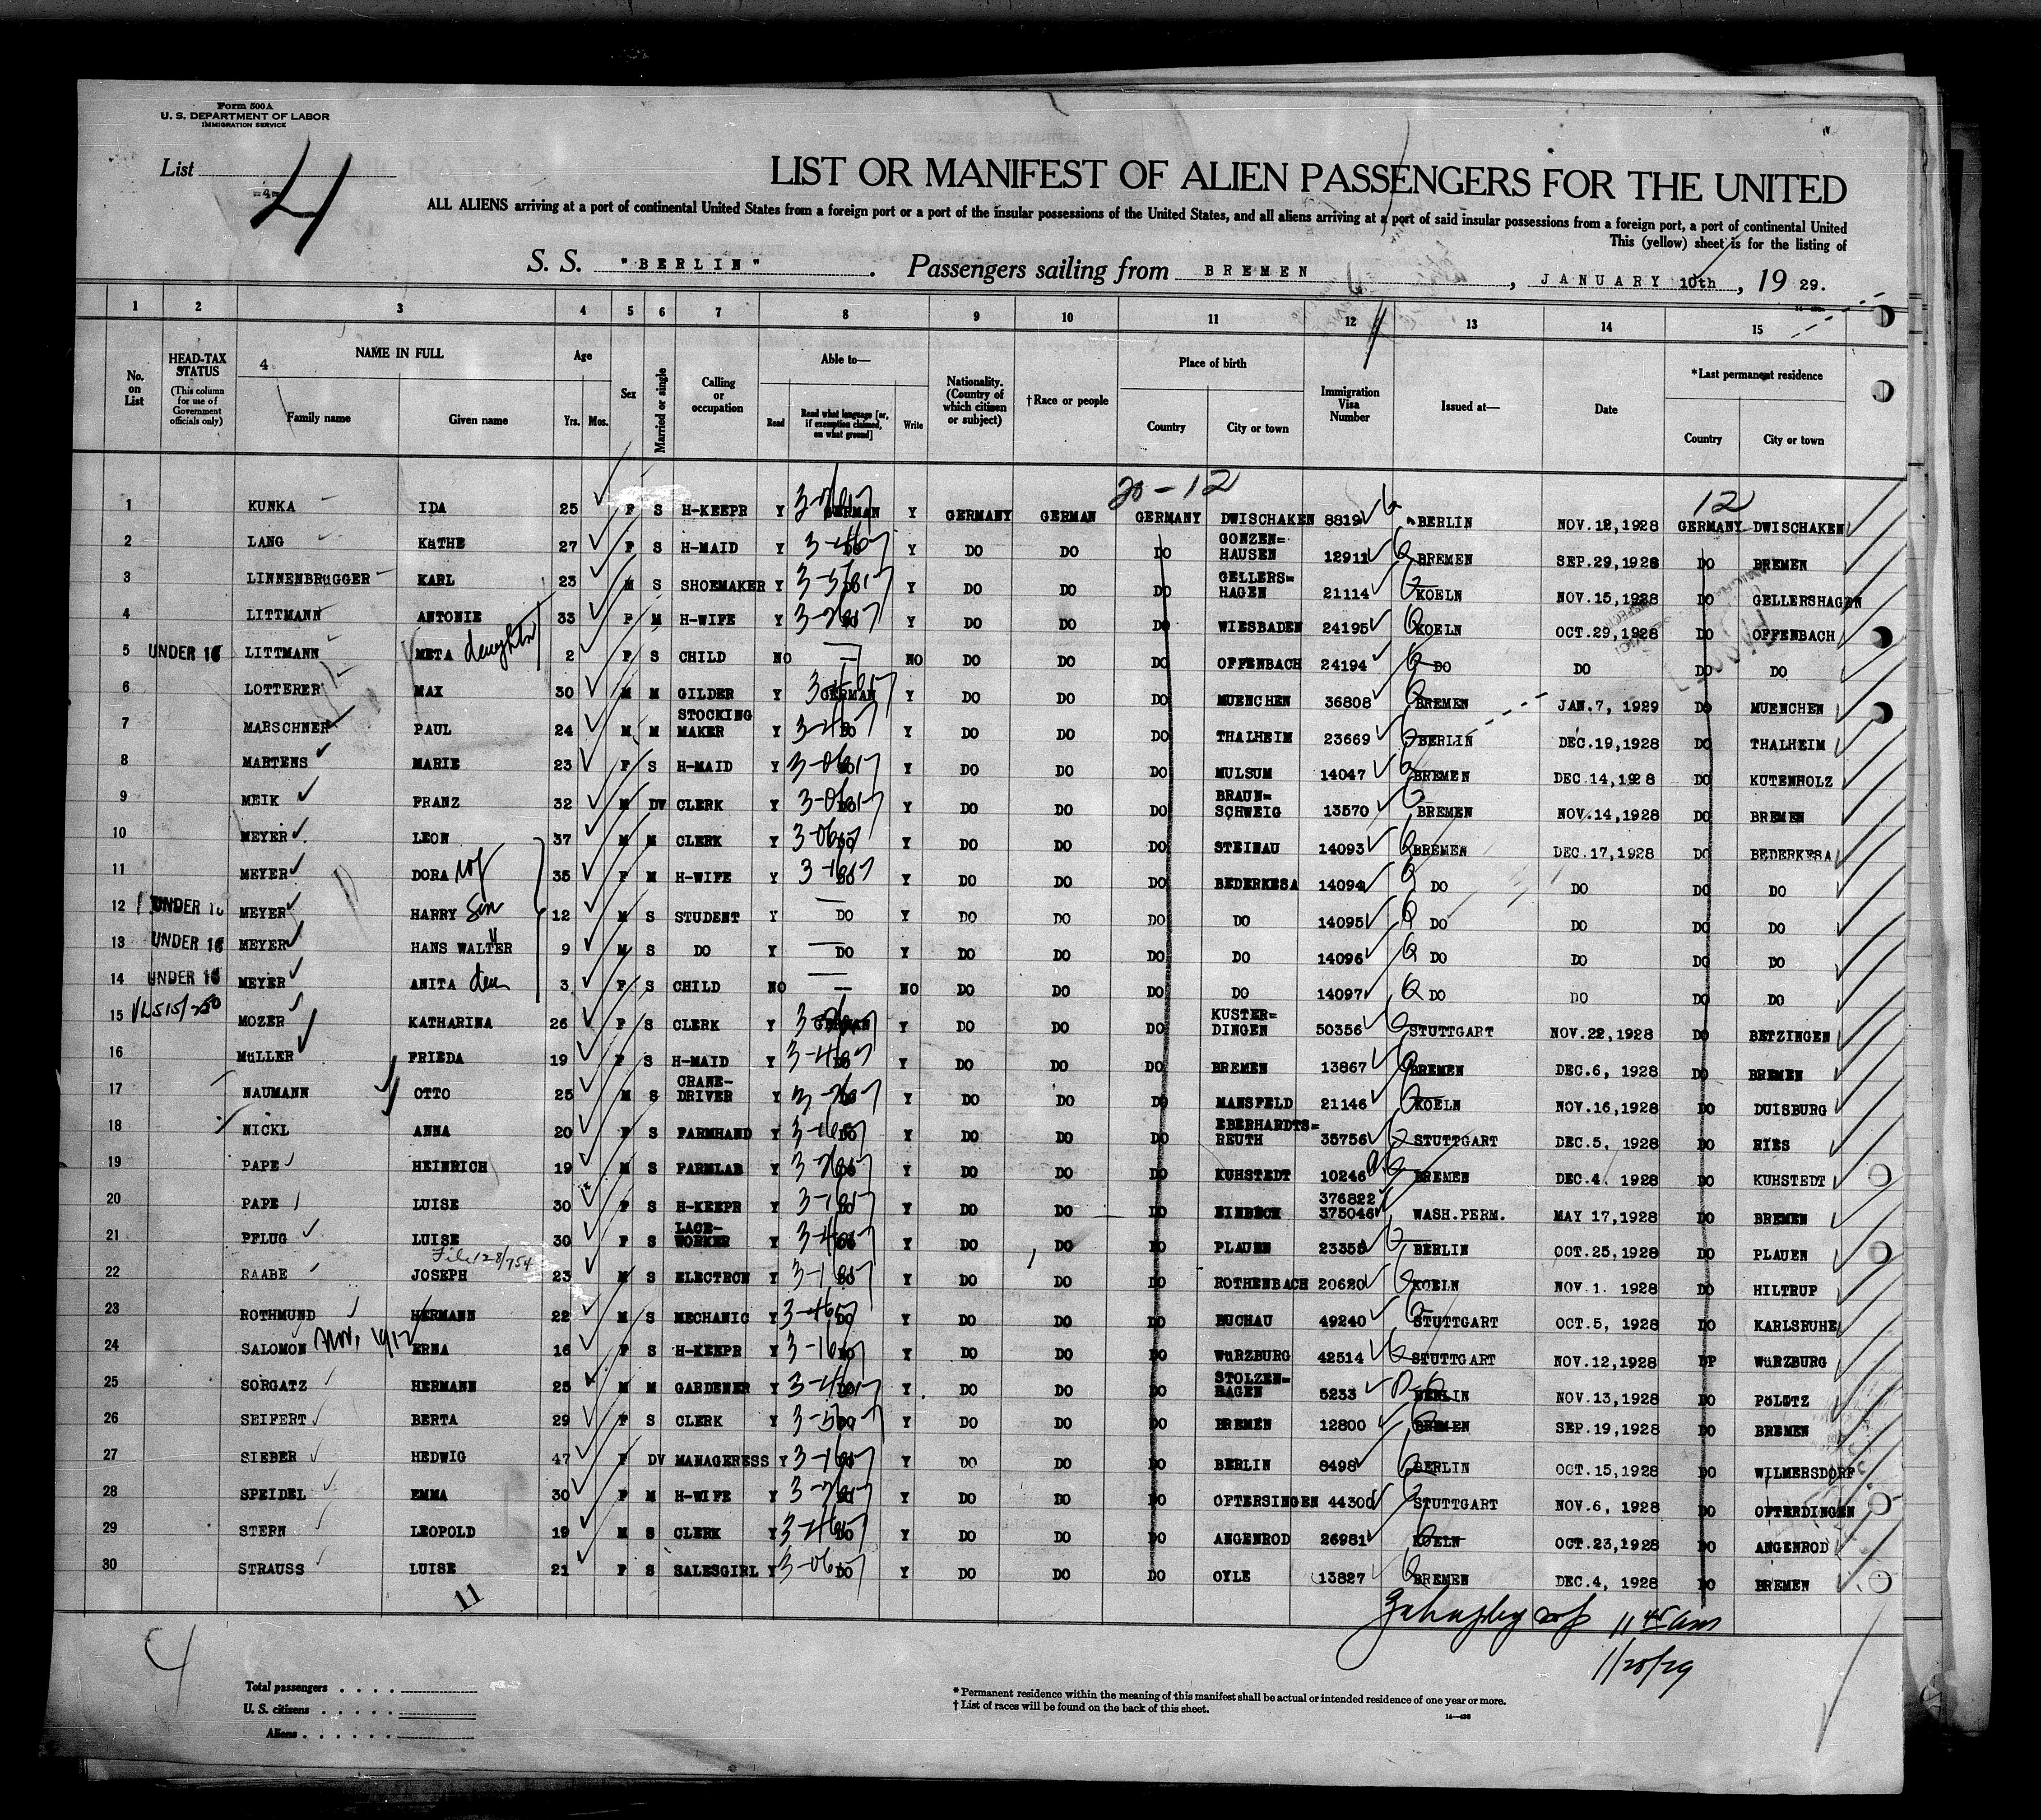 Form 500A
U. S. DEPARTMENT OF LABOR
IMMIGRATION SERVICE
List
-4-
4
LIST OR MANIFEST OF ALIEN PASSENGERS FOR THE UNITED
ALL ALIENS arriving at a port of continental United States from a foreign port or a port of the insular possessions of the United States, and all aliens arriving at a port of said insular possessions from a foreign port, a port of continental United
This (yellow) sheet is for the listing of
S. S. "BERLIN". Passengers sailing from BREMEN, JANUARY 10th, 19 29.
1 2 3 4 5 6 7 8 9 10 11 12 13 14 15
No. on List
HEAD-TAX STATUS (This column for use of Government officials only)
4 NAME IN FULL
Family name Given name
Age
Yrs. Mos.
Sex
Married or single
Calling or occupation
Able to—
Read Read what language [or, if exemption claimed, on what ground] Write
Nationality. (Country of which citizen or subject)
†Race or people
Place of birth
Country City or town
Immigration Visa Number
Issued at—
Date
*Last permanent residence
Country City or town
20-12 12
1 KUNKA IDA 25 F S H-KEEPR Y GERMAN Y GERMANY GERMAN GERMANY DWISCHAKEN 8819 BERLIN NOV.12,1928 GERMANY DWISCHAKEN
2 LANG KäTHE 27 F S H-MAID Y DO Y DO DO DO GONZEN=HAUSEN 12911 BREMEN SEP.29,1928 DO BREMEN
3 LINNENBRüGGER KARL 23 M S SHOEMAKER Y DO Y DO DO DO GELLERS=HAGEN 21114 KOELN NOV.15,1928 DO GELLERSHAGEN
4 LITTMANN ANTONIE 33 F M H-WIFE Y DO Y DO DO DO WIESBADEN 24195 KOELN OCT.29,1928 DO OFFENBACH
5 UNDER 16 LITTMANN META daughter 2 F S CHILD NO — NO DO DO DO OFFENBACH 24194 DO DO DO DO
6 LOTTERER MAX 30 M M GILDER Y GERMAN Y DO DO DO MUENCHEN 36808 BREMEN JAN.7, 1929 DO MUENCHEN
7 MARSCHNER PAUL 24 M M STOCKING MAKER Y DO Y DO DO DO THALHEIM 23669 BERLIN DEC.19,1928 DO THALHEIM
8 MARTENS MARIE 23 F S H-MAID Y DO Y DO DO DO MULSUM 14047 BREMEN DEC.14,1928 DO KUTENHOLZ
9 MEIK FRANZ 32 M DV CLERK Y DO Y DO DO DO BRAUN=SCHWEIG 13570 BREMEN NOV.14,1928 DO BREMEN
10 MEYER LEON 37 M M CLERK Y DO Y DO DO DO STEINAU 14093 BREMEN DEC.17,1928 DO BEDERKESA
11 MEYER DORA wf 35 F M H-WIFE Y DO Y DO DO DO BEDERKESA 14094 DO DO DO DO
12 UNDER 16 MEYER HARRY Son 12 M S STUDENT Y DO Y DO DO DO DO 14095 DO DO DO DO
13 UNDER 16 MEYER HANS WALTER " 9 M S DO Y DO Y DO DO DO DO 14096 DO DO DO DO
14 UNDER 16 MEYER ANITA dau 3 F S CHILD NO — NO DO DO DO DO 14097 DO DO DO DO
15 MOZER KATHARINA 26 F S CLERK Y GERMAN Y DO DO DO KUSTER=DINGEN 50356 STUTTGART NOV.22,1928 DO BETZINGEN
16 MüLLER FRIEDA 19 F S H-MAID Y DO Y DO DO DO BREMEN 13867 BREMEN DEC.6, 1928 DO BREMEN
17 NAUMANN OTTO 25 M S CRANE-DRIVER Y DO Y DO DO DO MANSFELD 21146 KOELN NOV.16,1928 DO DUISBURG
18 NICKL ANNA 20 F S FARMHAND Y DO Y DO DO DO EBERHARDTS=REUTH 35756 STUTTGART DEC.5, 1928 DO RIES
19 PAPE HEINRICH 19 M S FARMLAB Y DO Y DO DO DO KUHSTEDT 10246 BREMEN DEC.4, 1928 DO KUHSTEDT
20 PAPE LUISE 30 F S H-KEEPR Y DO Y DO DO DO EINBECK 376822 375046 WASH.PERM. MAY 17,1928 DO BREMEN
21 PFLUG LUISE 30 F S LACE-WORKER Y DO Y DO DO DO PLAUEN 23355 BERLIN OCT.25,1928 DO PLAUEN
File 128/754
22 RAABE JOSEPH 23 M S ELECTRCN Y DO Y DO DO DO ROTHENBACH 20620 KOELN NOV.1. 1928 DO HILTRUP
23 ROTHMUND HERMANN 22 M S MECHANIC Y DO Y DO DO DO BUCHAU 49240 STUTTGART OCT.5, 1928 DO KARLSRUHE
24 SALOMON Nov, 1912 ERNA 16 F S H-KEEPR Y DO Y DO DO DO WüRZBURG 42514 STUTTGART NOV.12,1928 DP WüRZBURG
25 SORGATZ HERMANN 25 M M GARDENER Y DO Y DO DO DO STOLZEN=HAGEN 5233 BERLIN NOV.13,1928 DO PöLOTZ
26 SEIFERT BERTA 29 F S CLERK Y DO Y DO DO DO BREMEN 12800 BREMEN SEP.19,1928 DO BREMEN
27 SIEBER HEDWIG 47 F DV MANAGERESS Y DO Y DO DO DO BERLIN 8498 BERLIN OCT.15,1928 DO WILMERSDORF
28 SPEIDEL EMMA 30 F M H-WIFE Y DO Y DO DO DO OFTERSINGEN 44300 STUTTGART NOV.6, 1928 DO OFTERDINGEN
29 STERN LEOPOLD 19 M S CLERK Y DO Y DO DO DO ANGENROD 26981 KOELN OCT.23,1928 DO ANGENROD
30 STRAUSS LUISE 21 F S SALESGIRL Y DO Y DO DO DO OYLE 13827 BREMEN DEC.4, 1928 DO BREMEN
11
11 45 am
1/20/29
4
Total passengers
U. S. citizens
Aliens
* Permanent residence within the meaning of this manifest shall be actual or intended residence of one year or more.
† List of races will be found on the back of this sheet.